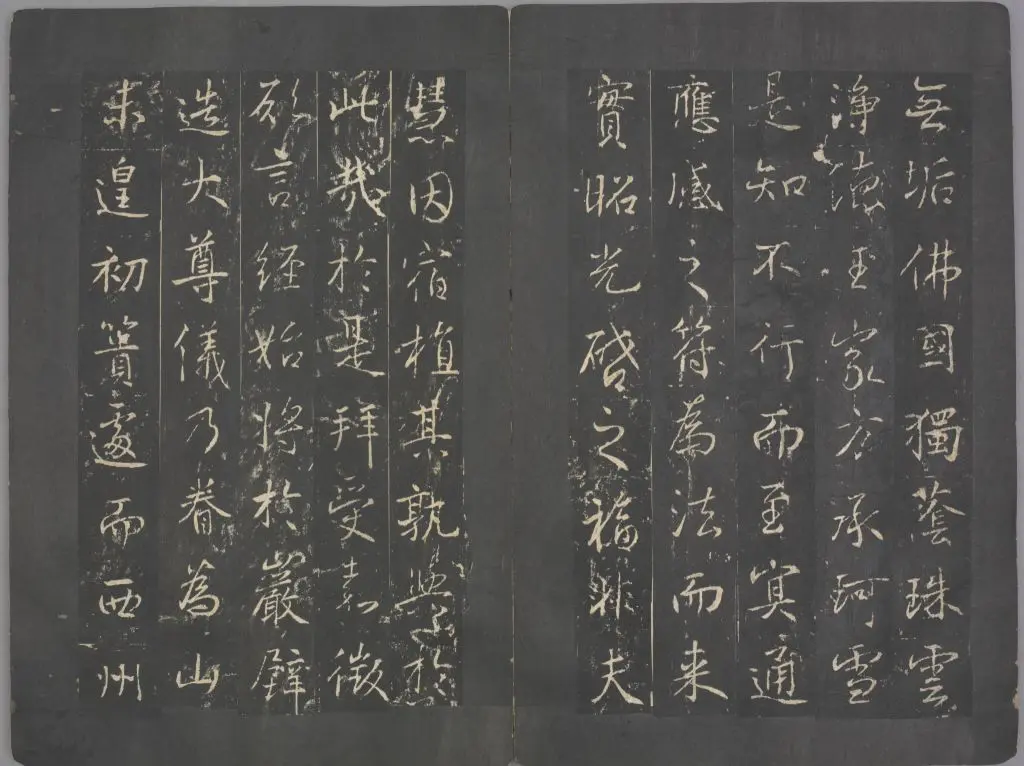 無垢佛國獨蔭珠雲
淨德王家方承珂雪
是知不行而至冥通
應感之符為法而来
實昭光啓之福非夫
慧因宿植其孰與於
此哉於是拜受嘉徵
言経始將於巖壁
造大尊儀乃眷為山
未遑初簣遽而西州